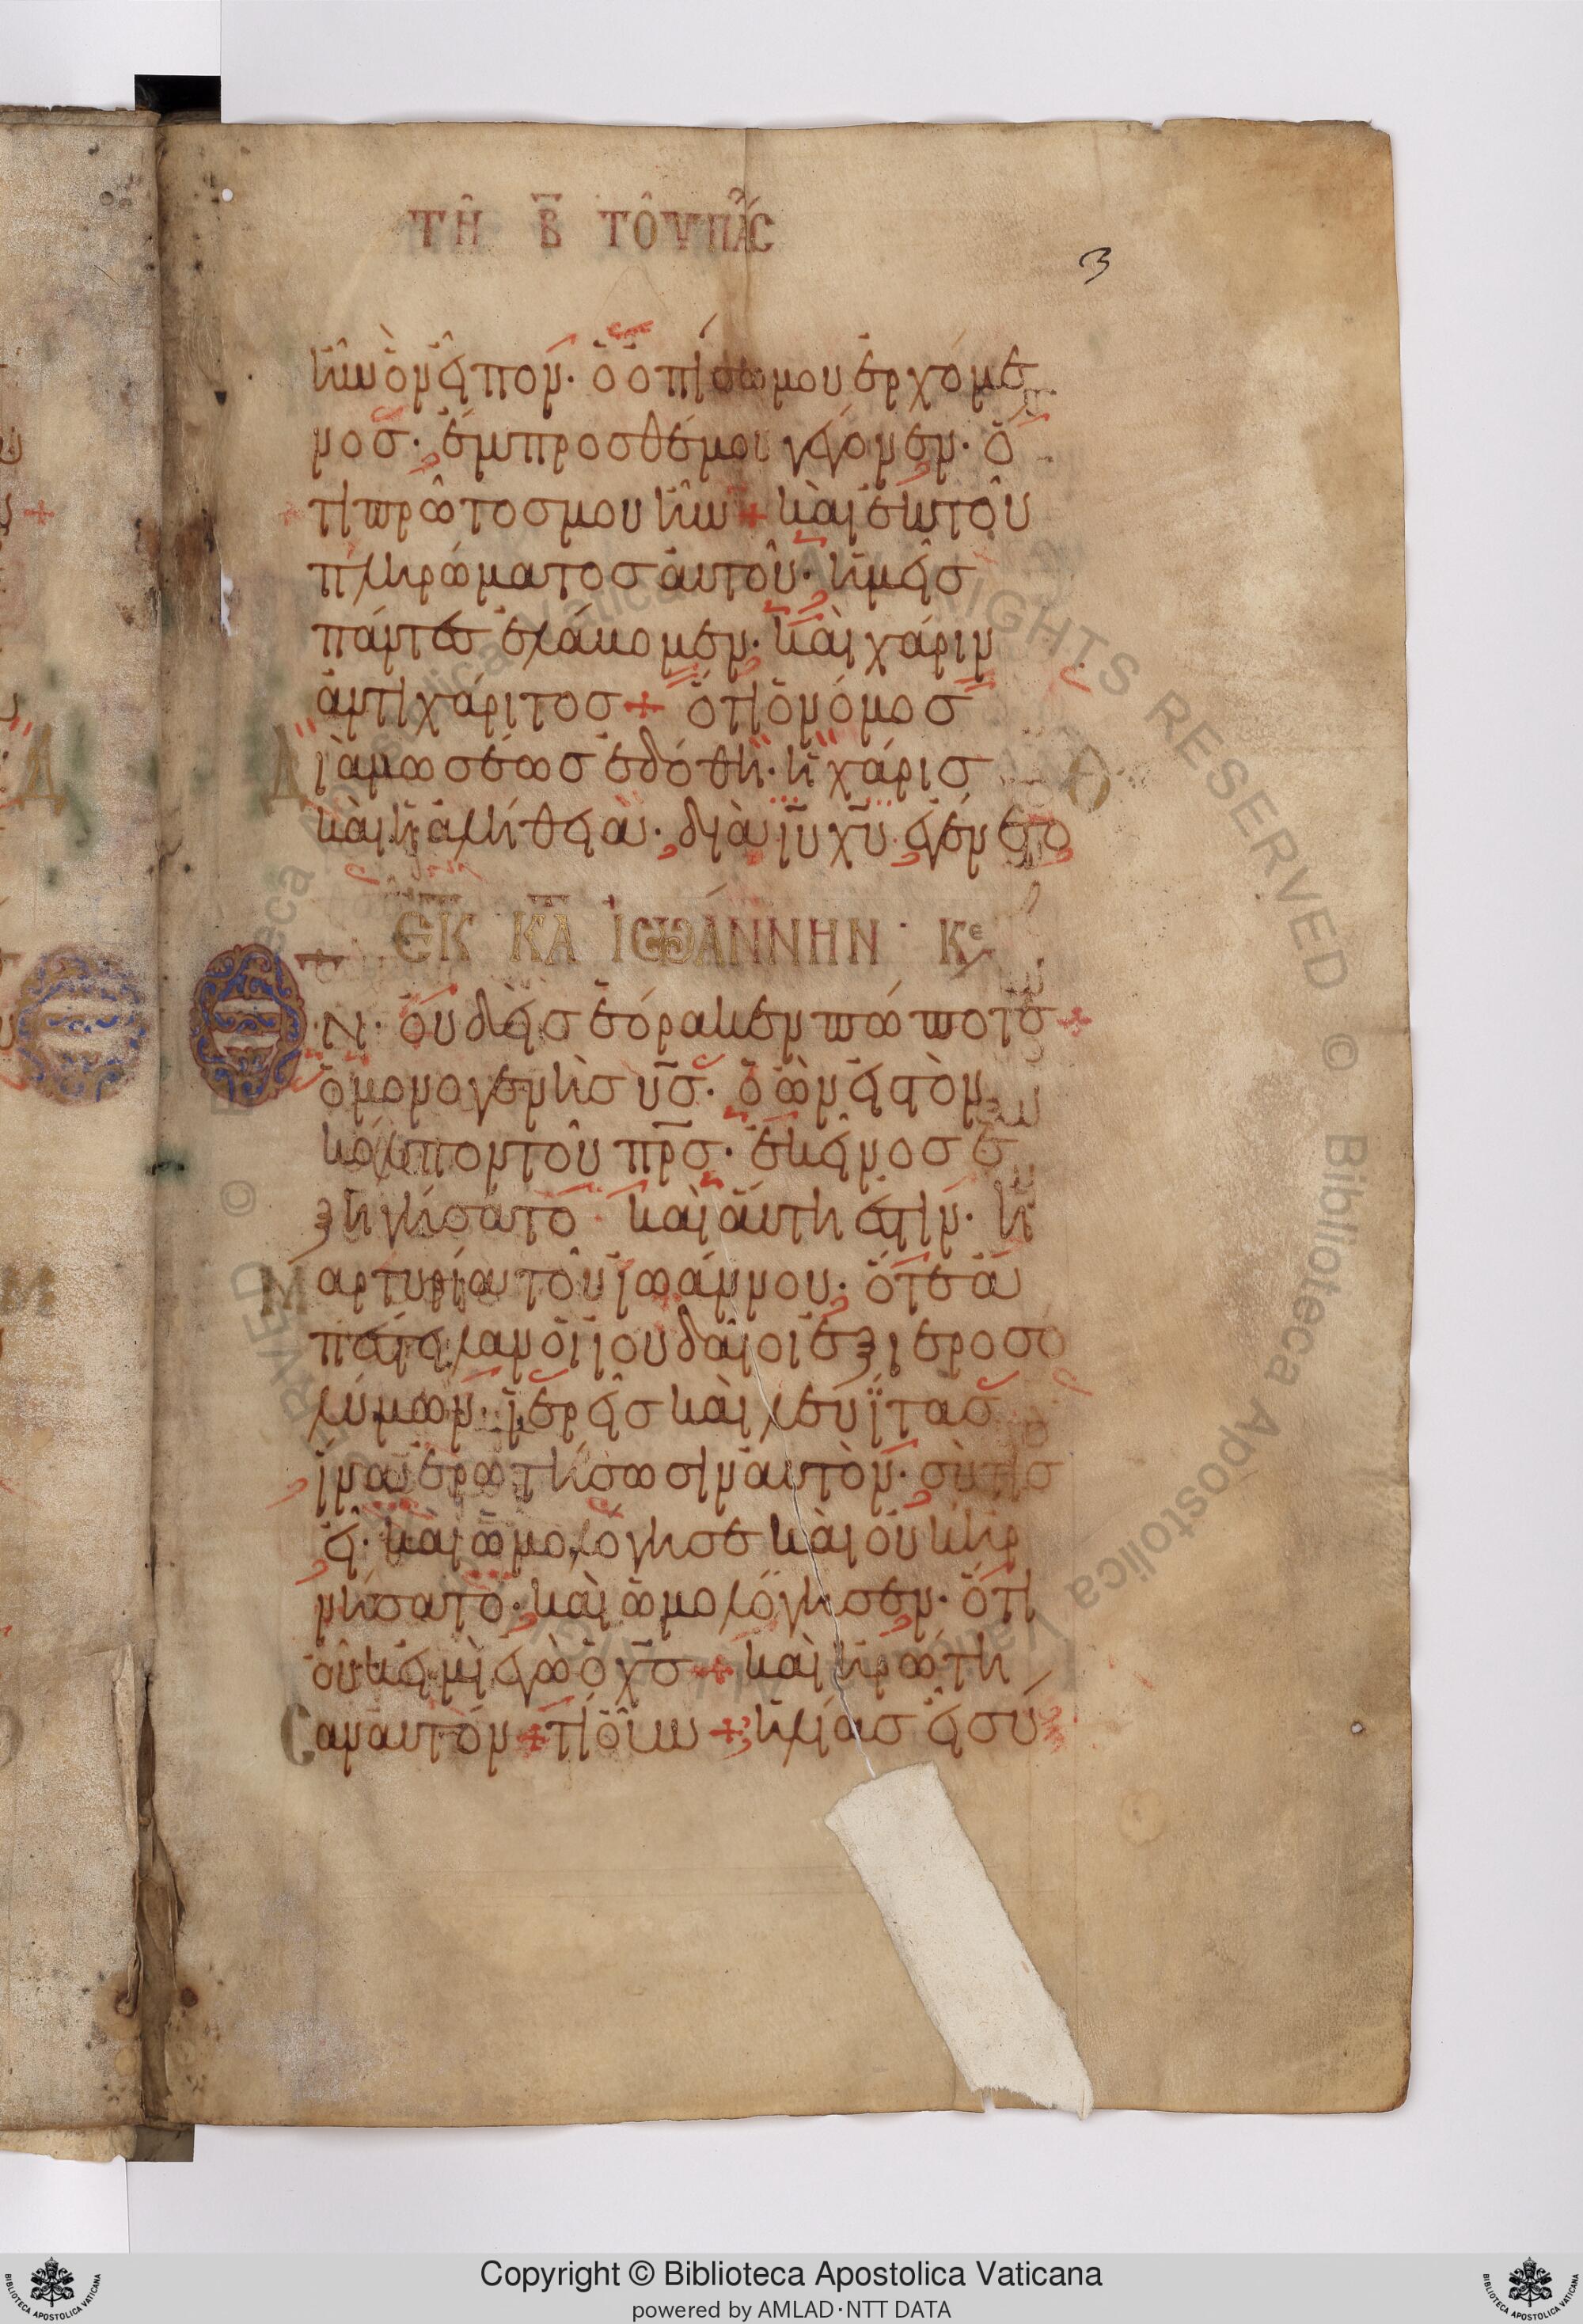 ΤΗ̂ Β̅ ΤΟΥ̂ ΠΑΣ
3
ἦν ὃν εἶπον· ὁ ὀπίσω μου ἐρχόμε
νος· ἔμπροσθέν μου γέγονεν· ὅ
τι πρῶτος μου ἦν + καὶ ἐκ τοῦ
πληρώματος αὐτοῦ· ἡμεῖς
πάντες ἐλάβομεν· καὶ χάριν
ἀντὶ χάριτος + ὅτι ὁ νόμος
Διὰ μωσέως ἐδόθη· ἡ χάρις
καὶ ἡ ἀλήθεια· διὰ ι̅υ̅ χ̅υ̅ ἐγένετο
ΕΚ ΚΑ ΙΩΑΝΝΗΝ · Κε
Θ̅Ν· οὐδεὶς ἑόρακεν πώποτε +
ὁ μονογενὴς υ̅ς̅· ὁ ὢν εἰς τὸν
κόλπον τοῦ π̅ρ̅ς̅· ἐκεῖνος ἐ
ξηγήσατο καὶ αὕτη ἐστὶν· ἡ
Μαρτυρία τοῦ ἰωάννου· ὅτε ἀ
πέστειλαν οἱ ἰουδαῖοι ἐξ ἱεροσο
λύμων· ἱερεῖς καὶ λευΐτας
ἵνα ἐρωτήσωσιν αὐτὸν· σὺ τίς
εἶ· καὶ ὡμολόγησε καὶ οὐκ ἠρ
νήσατο· καὶ ὡμολόγησεν· ὅτι
οὐκ εἰμὶ ἐγὼ ὁ χ̅ς̅ + καὶ ἠρώτη
Σαν αὐτόν + τί οὖν + ἡλίας εἶ σύ
Copyright © Biblioteca Apostolica Vaticana
powered by AMLAD·NTT DATA
BIBLIOTECA APOSTOLICA VATICANA
BIBLIOTECA APOSTOLICA VATICANA